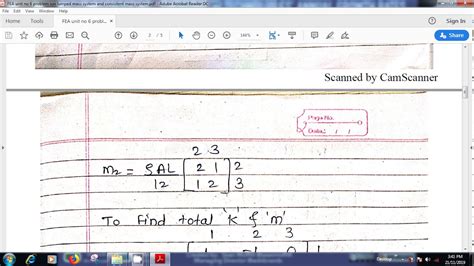 FEA unit no 6 problem on lumped mass system and consistent mass system.pdf - Adobe Acrobat Reader DC
File Edit View Window Help
Home Tools
FEA unit no 6 probl... ×
Sign In
3 / 5
146%
Share
Scanned by CamScanner
Page No.
Date: / /
2 3
m2 = ρAL [ 2 1 ] 2
12 [ 1 2 ] 3
To find total 'K' & 'm'
1 2 3
1 -1 0 1
3:41 PM
21/11/2019